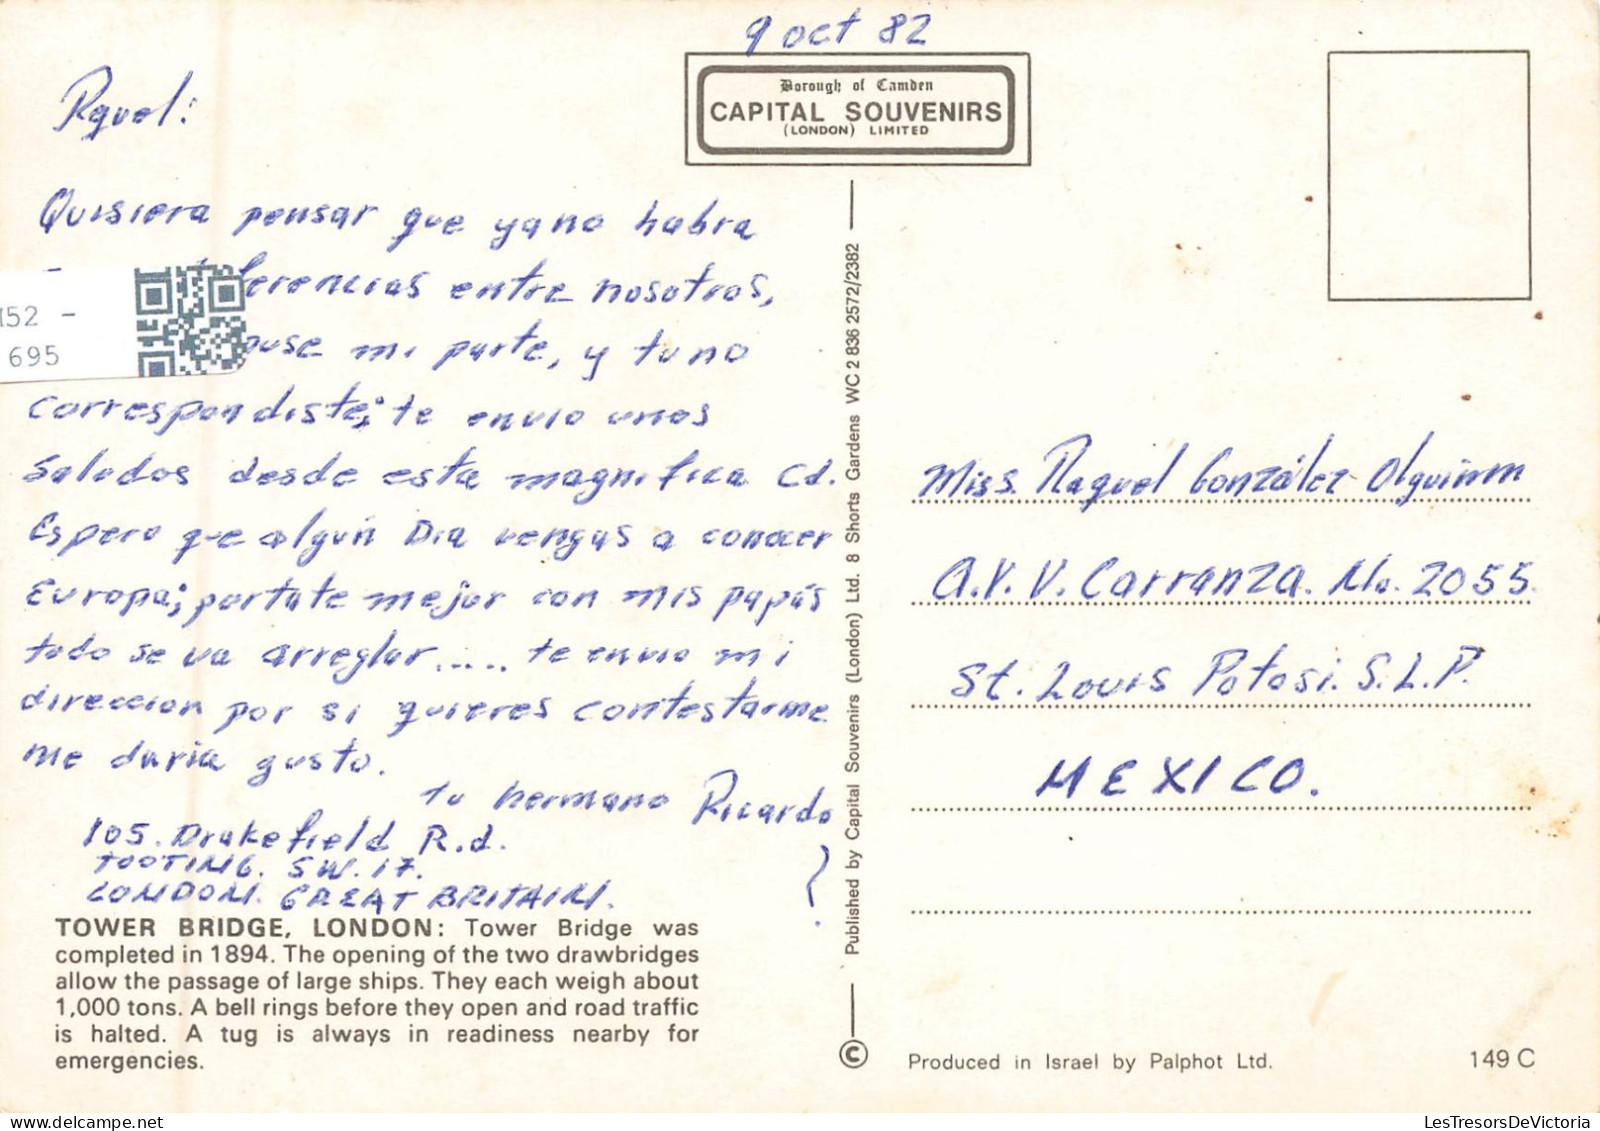 9 oct 82
Borough of Camden
CAPITAL SOUVENIRS
(LONDON) LIMITED
Raquel:
Quisiera pensar que ya no habra
ferencias entre nosotros,
puse mi parte, y tu no
correspondiste; te envio unos
Saludos desde esta magnifica Cd.
Espero que algún Dia vengas a conocer
Europa; portate mejor con mis papás
todo se va arreglar..... te envio mi
direccion por si quieres contestarme
me daria gusto.
Tu hermano Ricardo
105. Drakefield R.d.
TOOTING. SW. 17.
LONDON. GREAT BRITAIN.
152 -
695
TOWER BRIDGE, LONDON: Tower Bridge was
completed in 1894. The opening of the two drawbridges
allow the passage of large ships. They each weigh about
1,000 tons. A bell rings before they open and road traffic
is halted. A tug is always in readiness nearby for
emergencies.
Published by Capital Souvenirs (London) Ltd. 8 Shorts Gardens WC2 836 2572/2382
©
Miss. Raquel González Olguinm
A.V. V. Carranza. No. 2055.
St. Louis Potosi. S.L.P.
MEXICO.
Produced in Israel by Palphot Ltd.
149 C
LesTresorsDeVictoria